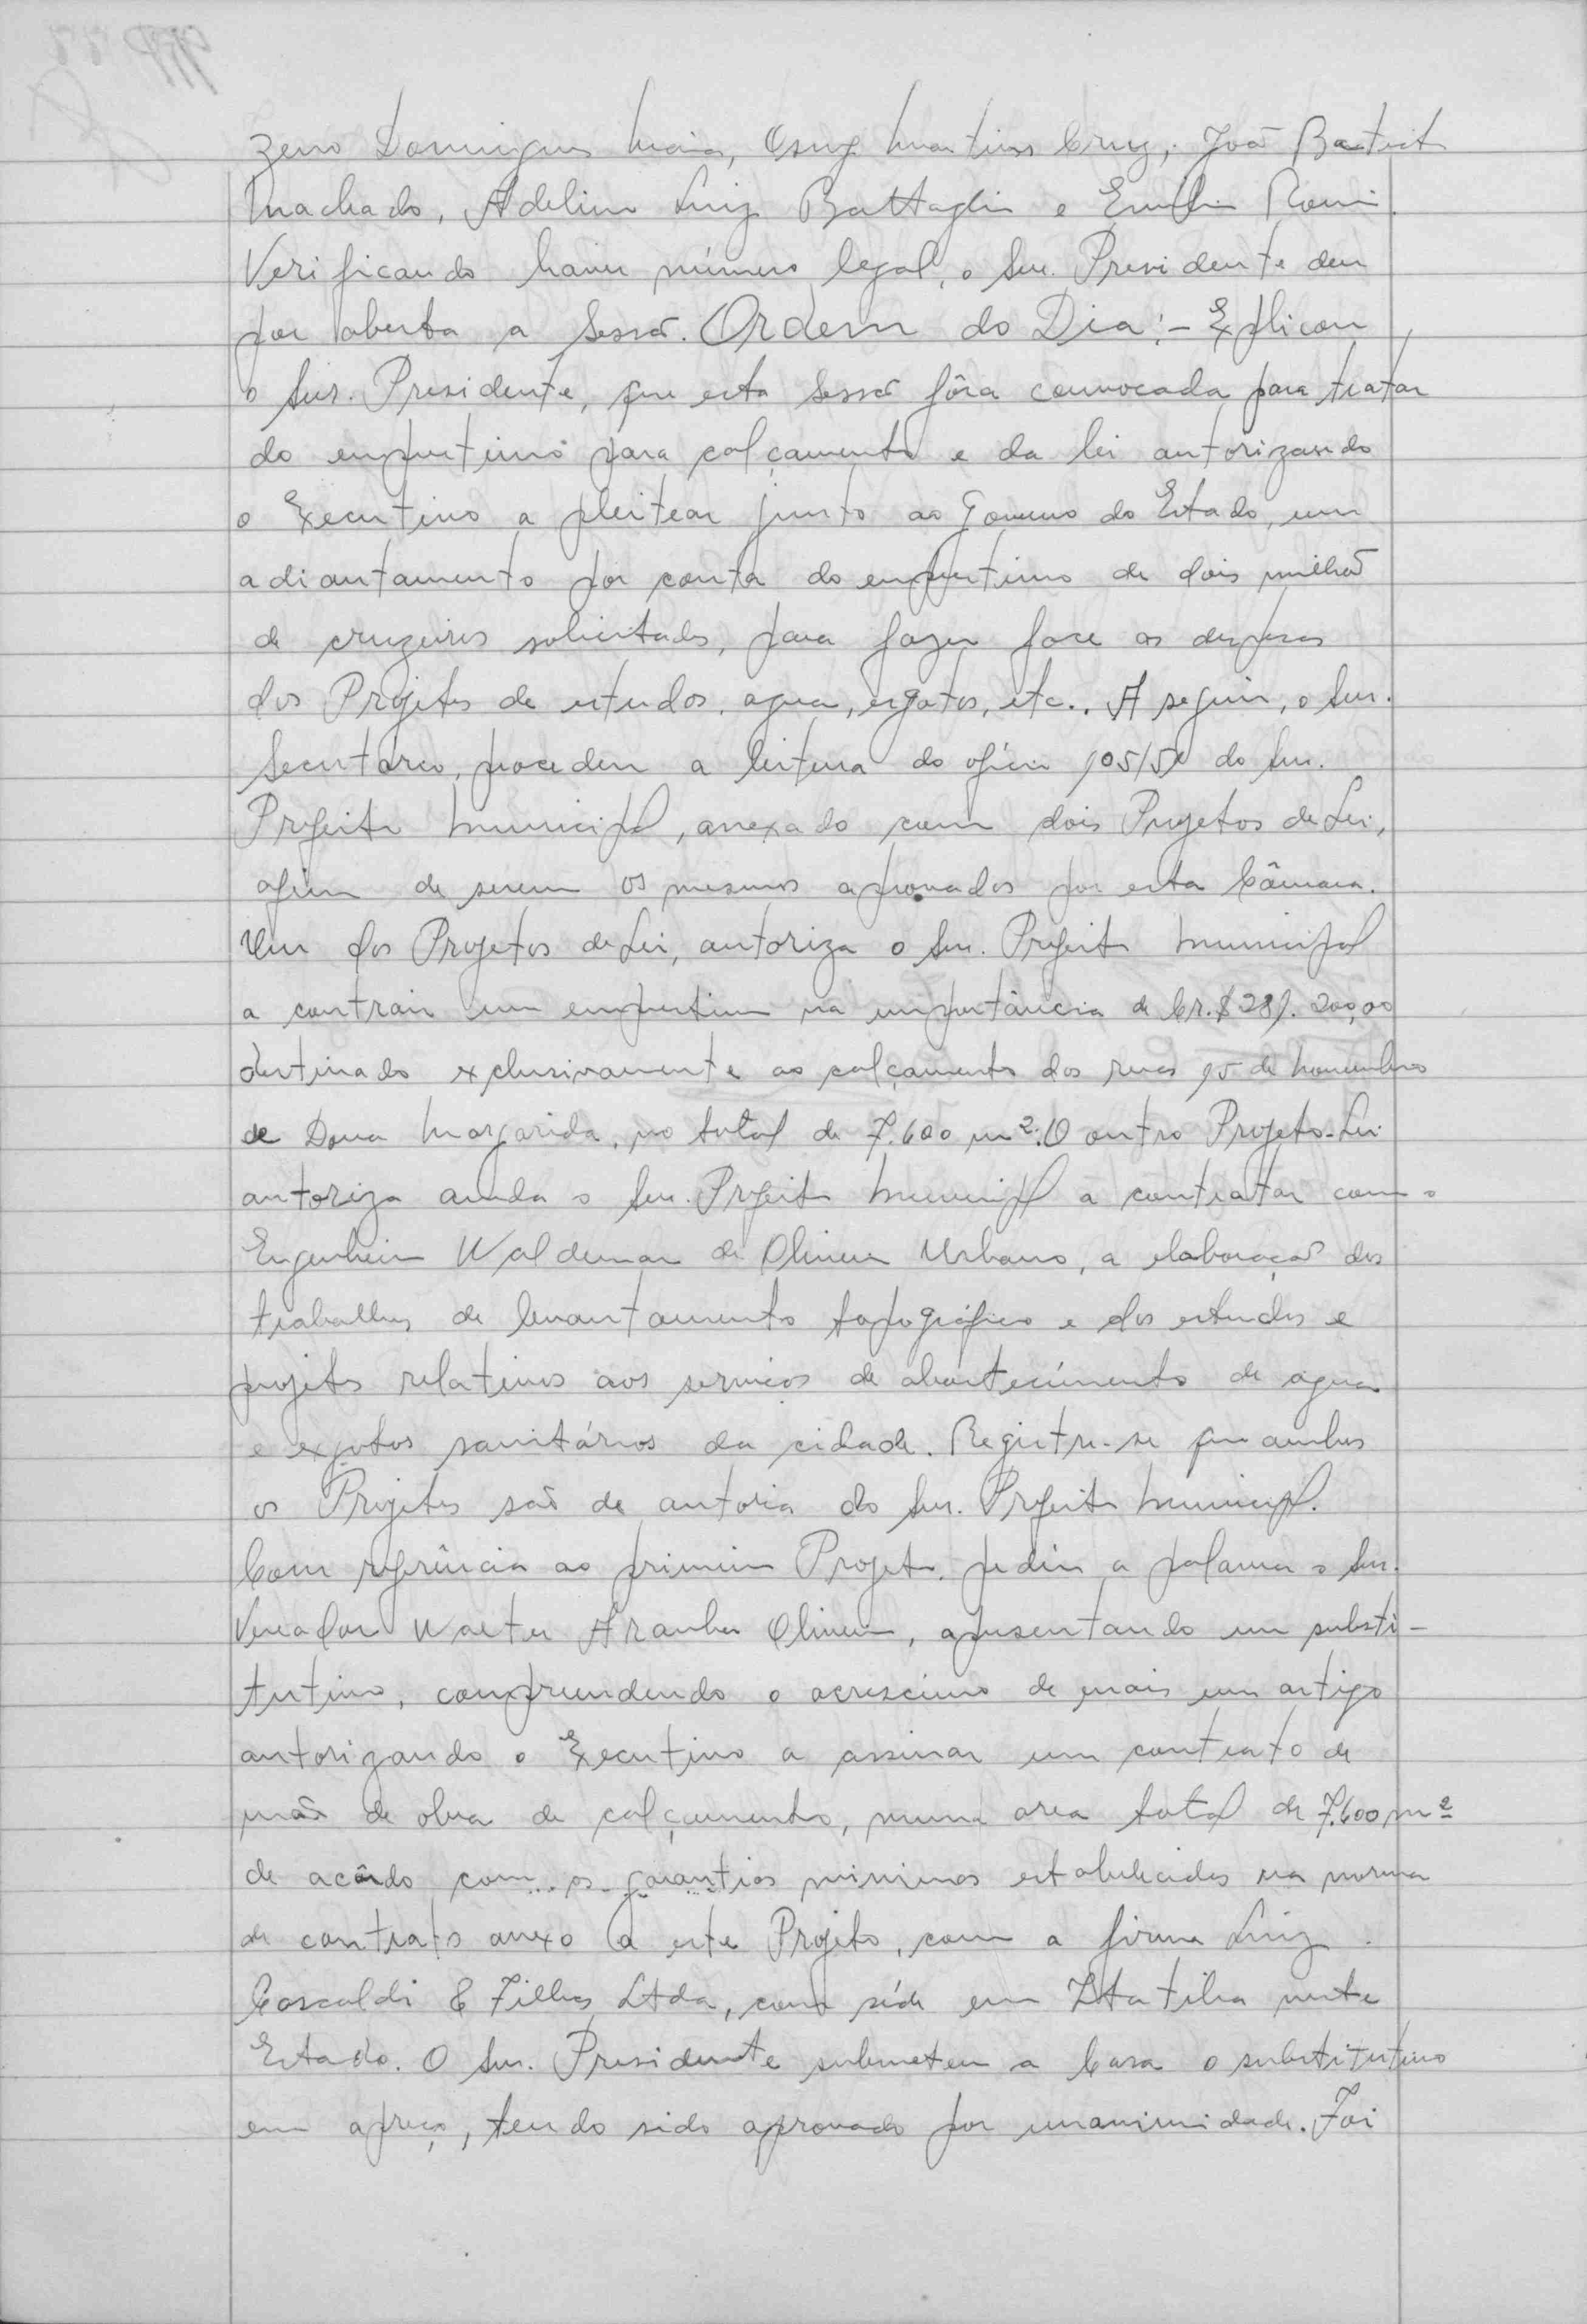 Zeno Domingues Maia, Osny Martins Cruz, João Batist
Machado, Adelino Luiz Battaglin e Emilio Romi.
Verificando haver número legal, o Snr. Presidente deu
por aberta a Sessão. Ordem do Dia:- Explicou
o Snr. Presidente, que esta Sessão fôra convocada para tratar
do emprestimo para calçamento e da lei autorizando
o Executivo a pleitear junto ao Governo do Estado, um
adiantamento por conta do emprestimo de dois milhão
de cruzeiros solicitados, para fazer face as despesas
dos Projetos de estudos, agua, esgotos, etc.. A seguir, o Snr.
Secretário, procedeu a leitura do ofício do Snr.
Prefeito Municipal, anexado com dois Projetos de Lei,
afim de serem os mesmos aprovados por esta Câmara.
Um dos Projetos de Lei, autoriza o Snr. Prefeito Municipal
a contrair um emprestimo na importância de Cr.$ 281.200,00
destinado exclusivamente ao calçamento das ruas 15 de Novembro
de Dona Margarida, no total de 7.600 m². O outro Projeto-Lei
autoriza ainda o Snr. Prefeito Municipal a contratar com o
Engenheiro Waldemar de Oliveira Urbano, a elaboração dos
trabalhos de levantamento topográfico e dos estudos e
projetos relativos aos serviços de abastecimento de agua
e exgotos sanitários da cidade. Registre-se que ambos
os Projetos são de autoria do Snr. Prefeito Municipal.
Com referência ao primeiro Projeto, pediu a palavra o Snr.
Vereador Walter Aranha Oliveira, apresentando um substi-
tutivo, compreendendo o acrescimo de mais um artigo
autorizando o Executivo a assinar um contrato de
mão de obra de calçamento, numa area total de 7.600 m²
de acôrdo com as garantias minimas estabelecidas na norma
de contrato anexo a este Projeto, com a firma Luiz
Coscaldi & Filhos Ltda, com séde em Itatiba neste
Estado. O Snr. Presidente submeteu a Casa o substitutivo
em apreço, tendo sido aprovado por unanimidade. Foi